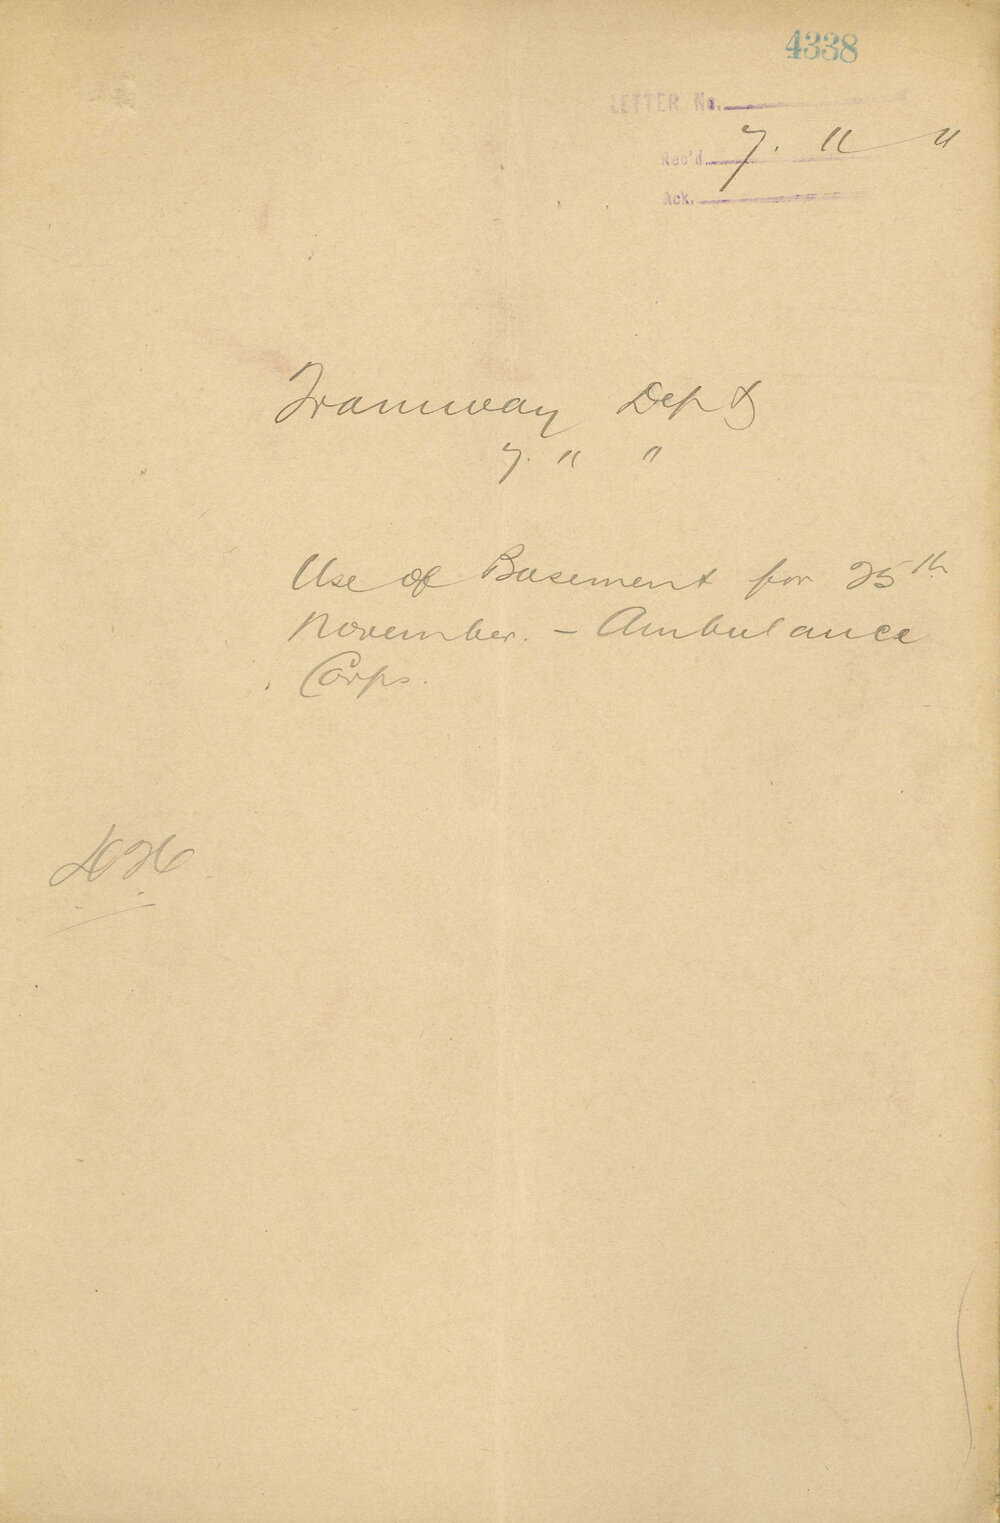 4338
LETTER No.
Rec'd 7. " "
Ack.
Tramway Dept
7. " "
Use of Basement for 25th
November. - Ambulance
Corps.